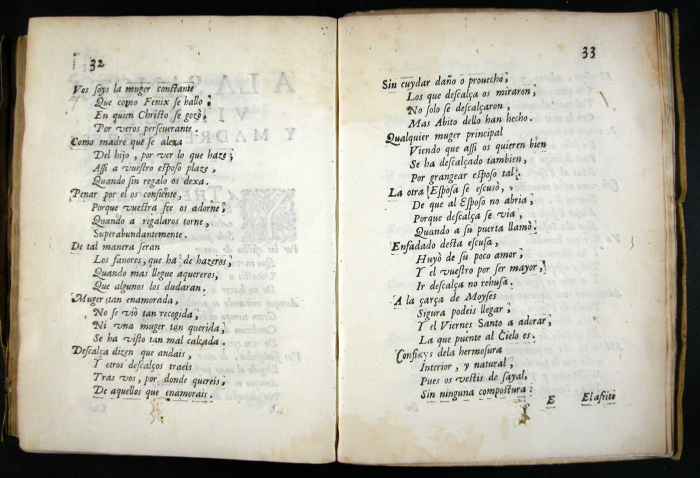 32
Vos soys la muger constante
Que como Fenix se hallo;
En quien Christo se gozò,
Por veros perseuerante.
Como madre que se alexa
Del hijo, por ver lo que haze;
Assi a vuestro esposo plaze,
Quando sin regalo os dexa.
Penar por el os consiente,
Porque vuestra fee os adorne;
Quando a regalaros torne,
Superabundantemente.
De tal manera seran
Los fauores, que ha de hazeros;
Quando mas llegue aquereros,
Que algunos los dudaran.
Muger tan enamorada,
No se viò tan recogida,
Ni vna muger tan querida,
Se ha visto tan mal calçada.
Descalça dizen que andais,
Y otros descalços traeis
Tras vos, por donde quereis,
De aquellos que enamorais.
33
Sin cuydar daño o prouecho;
Los que descalça os miraron,
No solo se descalçaron,
Mas Abito dello han hecho.
Qualquier muger principal
Viendo que assi os quieren bien
Se ha descalçado tambien,
Por grangear esposo tal.
La otra Esposa se escusò,
De que al Esposo no abria,
Porque descalça se via,
Quando a su puerta llamò.
Enfadado desta escusa,
Huyò de su poco amor,
Y el vuestro por ser mayor,
Ir descalça no rehusa.
A la çarça de Moyses
Sigura podeis llegar,
Y el Viernes Santo a adorar,
La que puente al Cielo es.
Confiays dela hermosura
Interior, y natural,
Pues os vestis de sayal,
Sin ninguna compostura:
E El afeite